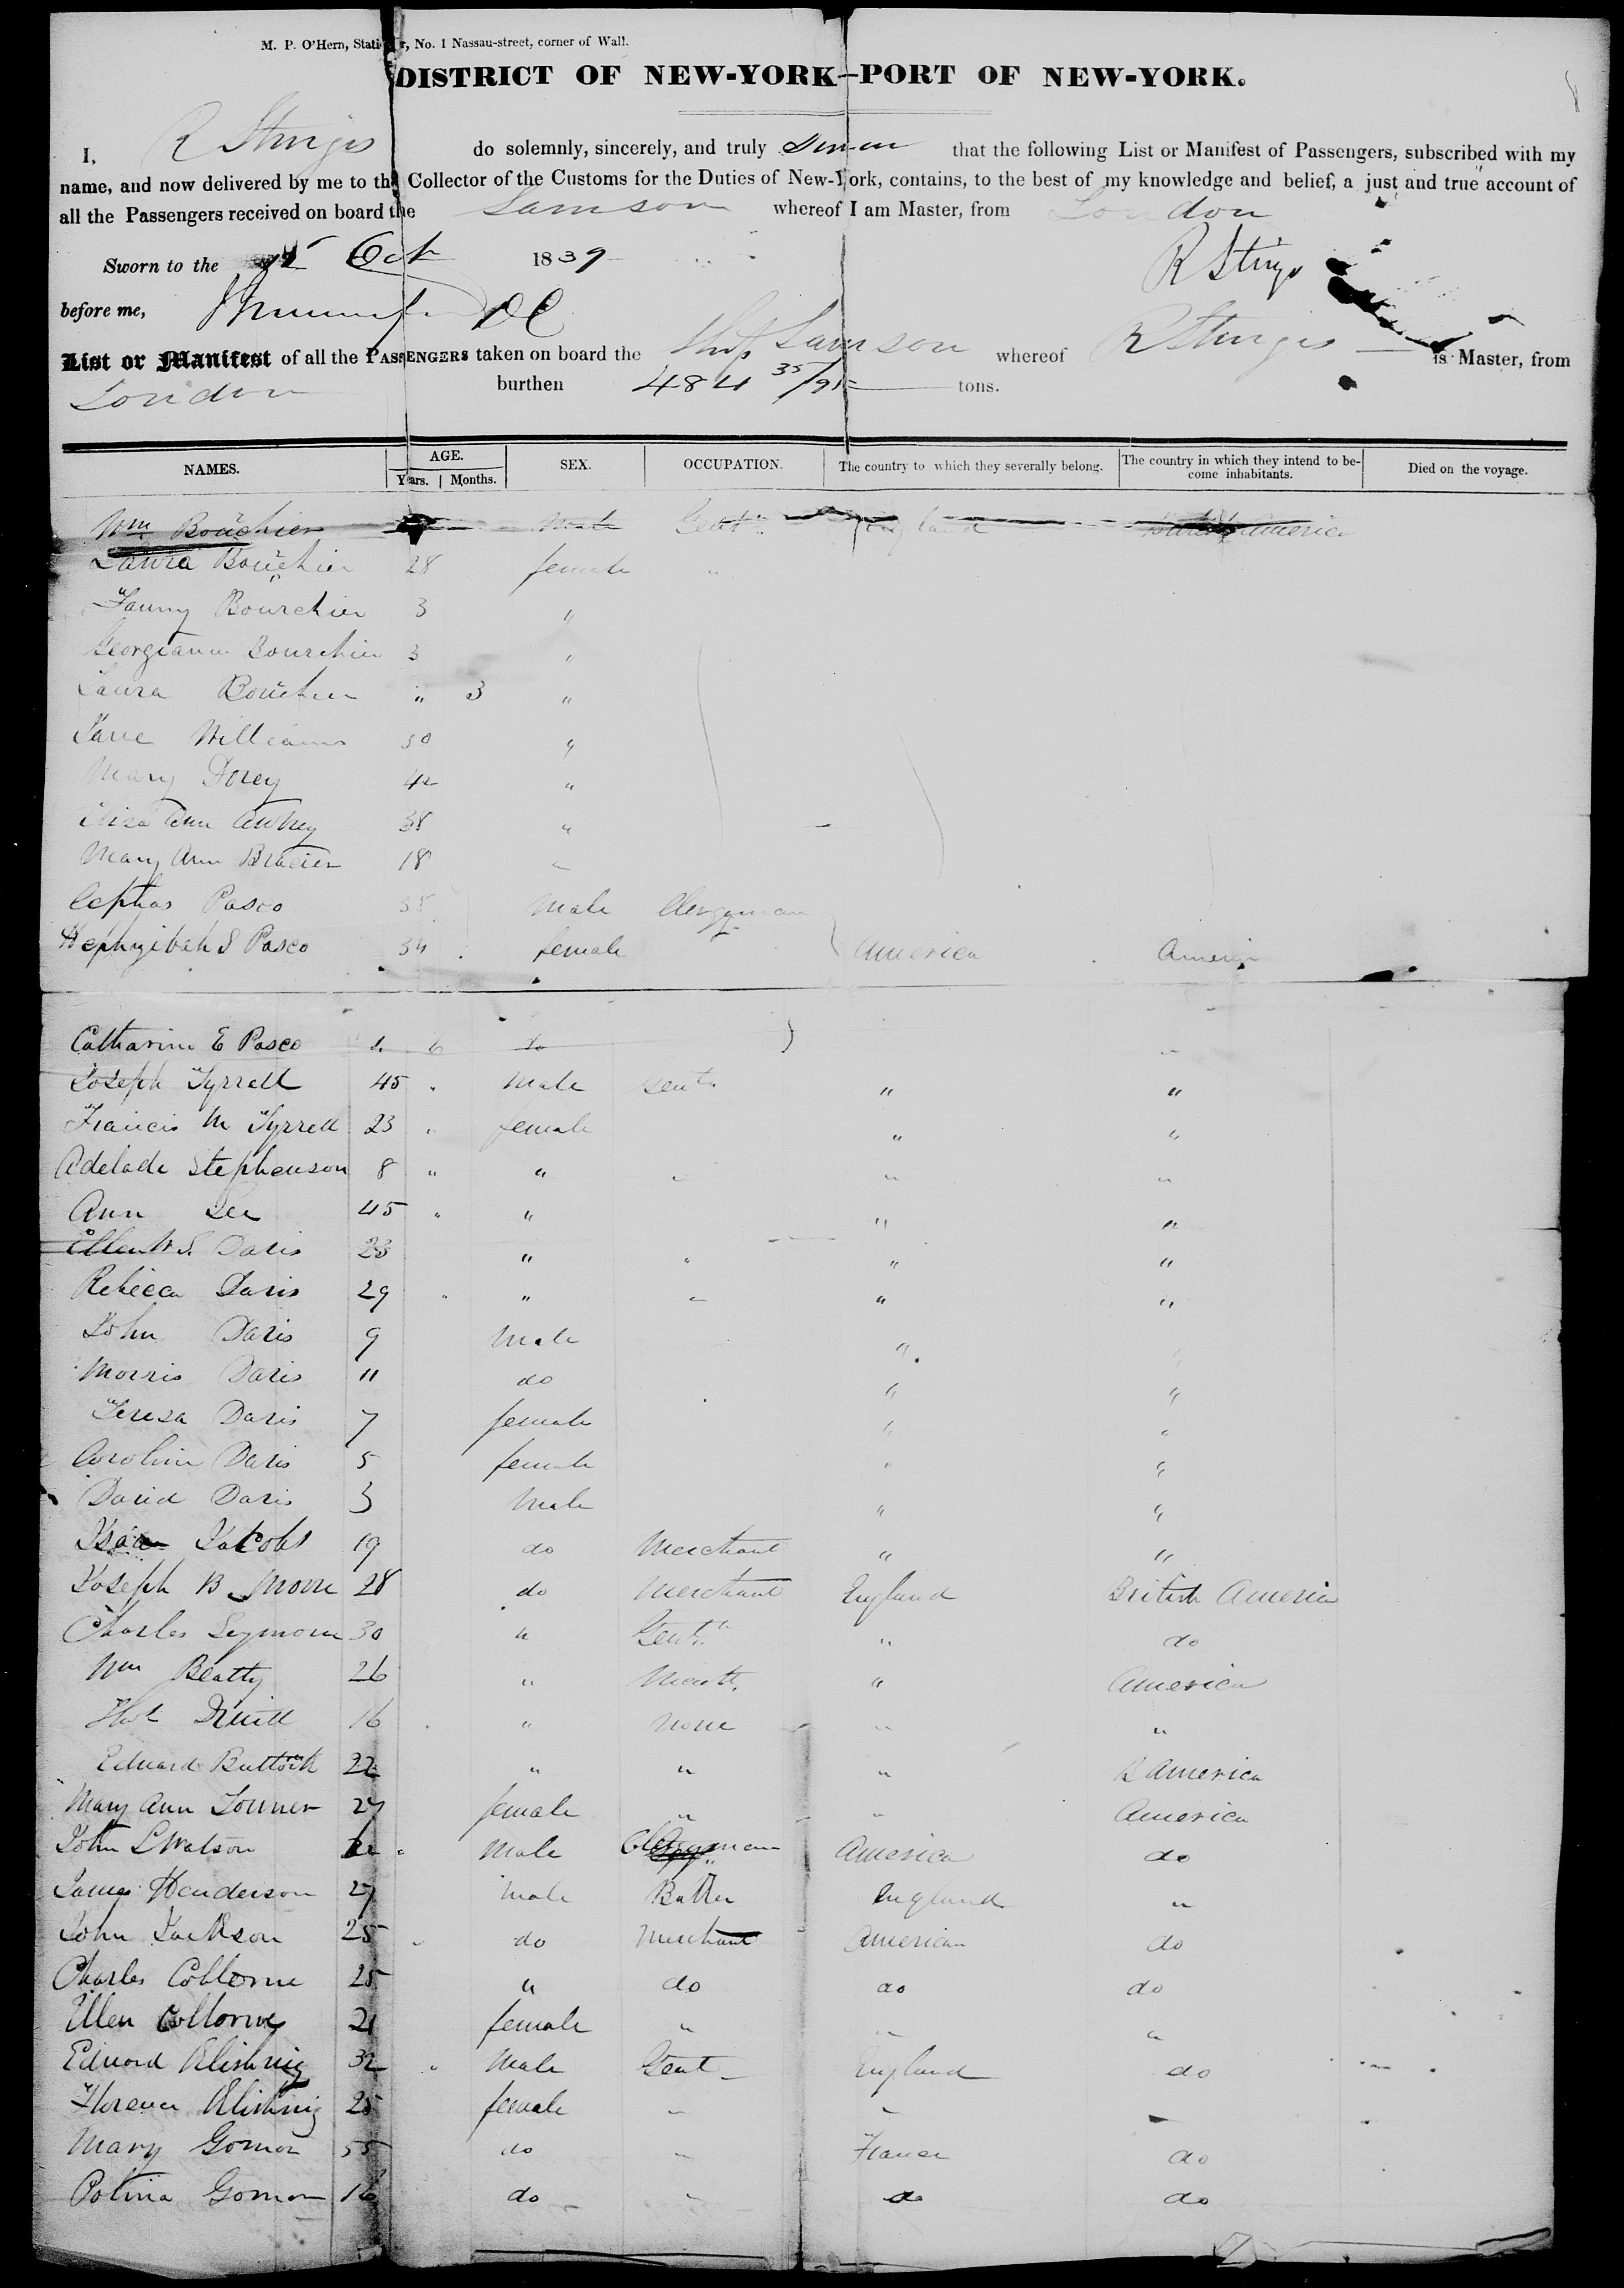 M. P. O'Hern, Stati r, No. 1 Nassau-street, corner of Wall.
DISTRICT OF NEW-YORK—PORT OF NEW-YORK.
I, R Sturgis do solemnly, sincerely, and truly swear that the following List or Manifest of Passengers, subscribed with my
name, and now delivered by me to the Collector of the Customs for the Duties of New-York, contains, to the best of my knowledge and belief, a just and true account of
all the Passengers received on board the Samson whereof I am Master, from London
Sworn to the Oct 1839
R Sturgis
before me, DC
List or Manifest of all the PASSENGERS taken on board the Ship Samson whereof R Sturgis is Master, from
London burthen 484 35/95 tons.
NAMES. AGE. Years. Months. SEX. OCCUPATION. The country to which they severally belong. The country in which they intend to be-
come inhabitants. Died on the voyage.
Wm Bourchier Male Gentn England British America
Laura Bourchier 28 female "
Fanny Bourchier 3 "
Georgiana Bourchier 3 "
Laura Bourchier " 3 "
Jane Williams 30 "
Mary Dorey 42 "
Eliza Ann Awbrey 38 "
Mary Ann Bracier 18 "
Cephas Pasco 35 Male Clergyman
Hephzibah S Pasco 34 female America America
Catharine E Pasco 4 6 do "
Joseph Tyrrell 45 " Male Gent. " "
Francis M Tyrrell 23 " female " "
Adelade Stephenson 8 " " " " "
Ann Lee 45 " " " "
Ellen W S. Davis 23 " " " "
Rebecca Davis 29 " " " " "
John Davis 9 Male " "
Morris Davis 11 do " "
Teresa Davis 7 female " "
Caroline Davis 5 female " "
David Davis 3 Male " "
Isaac Jacobs 19 do Merchant " "
Joseph B Morse 28 do Merchant England British America
Charles Seymour 30 " Gentn " do
Wm Beatty 26 " Mercht. " America
16 " None " "
Edward 22 " " " B America
Mary Ann 27 female " " America
John L Watson " Male Clergyman America do
James Henderson 27 Male England "
John Jackson 25 " do Merchant American do
Charles Collorne 25 " do do do
Ellen Collorne 21 female " " "
Edward 32 " Male Gent England do
Florence 25 female " " "
Mary Gomon 55 do " France do
Polina Gomon 16 do " do do